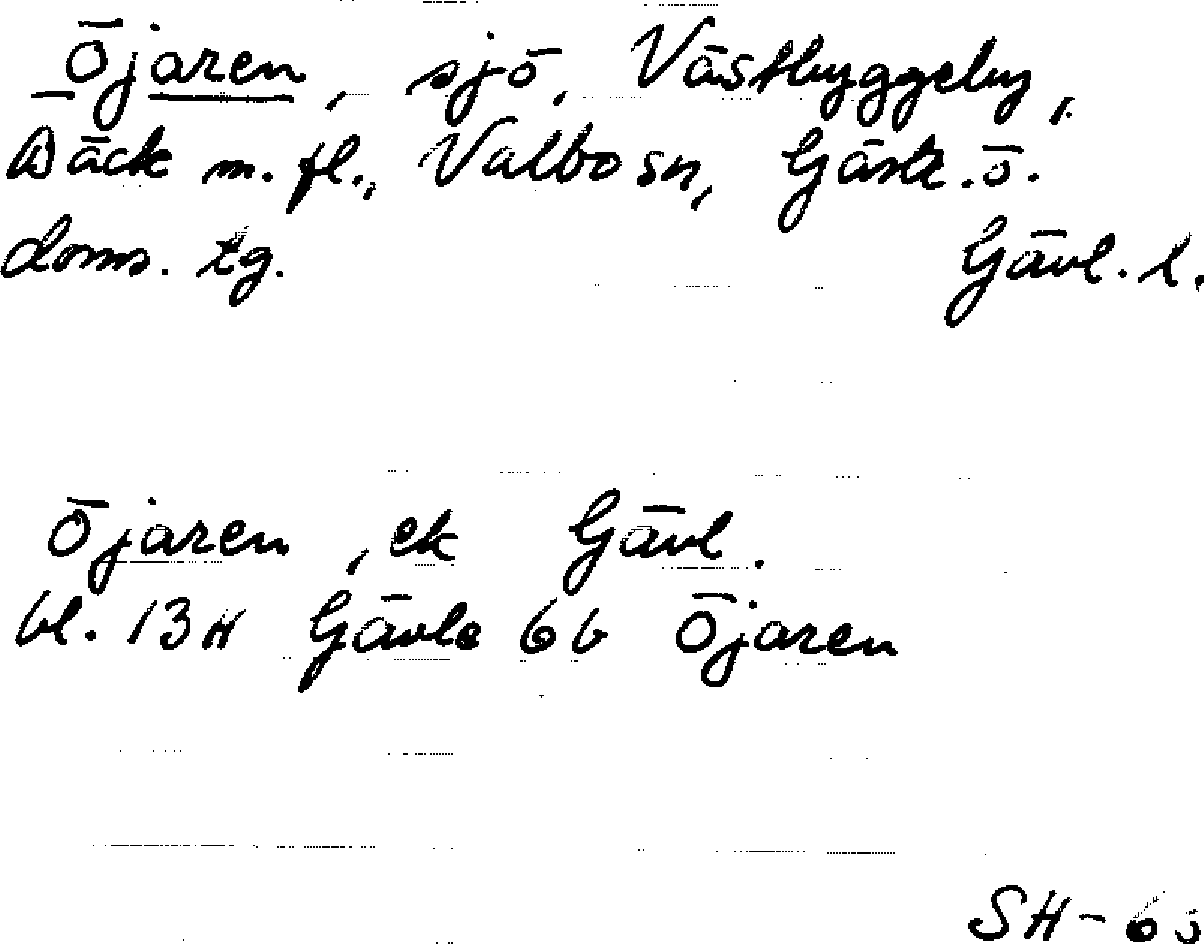 Öjaren, sjö, Västbyggeby,
Bäck m. fl., Valbo sn, Gästr. ö.
doms. tg. Gävl. l.
Öjaren, ek Gävl.
bl. 13H Gävle 6b Öjaren
SH-63